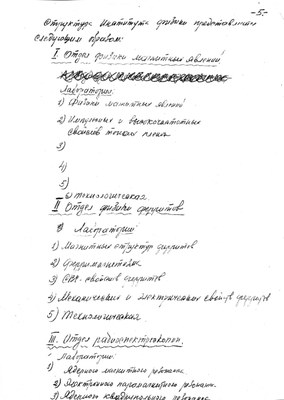 -5-
Структура Института физики представлена
следующим образом:
I Отдел физики магнитных явлений
Лаборатории:
1) Физики магнитных явлений
2) Импульсных и высокочастотных
свойств тонких пленок
3)
4)
5)
6) технологическая
II Отдел физики ферритов
Лаборатории
1) Магнитных структур ферритов
2)
3) СВЧ-свойств ферритов
4) Механических и электрических свойств ферритов
5) Технологическая
III. Отдел радиоспектроскопии.
Лаборатории:
1) Ядерного магнитного резонанса
2) Электронного парамагнитного резонанса.
3) Ядерного квадрупольного резонанса